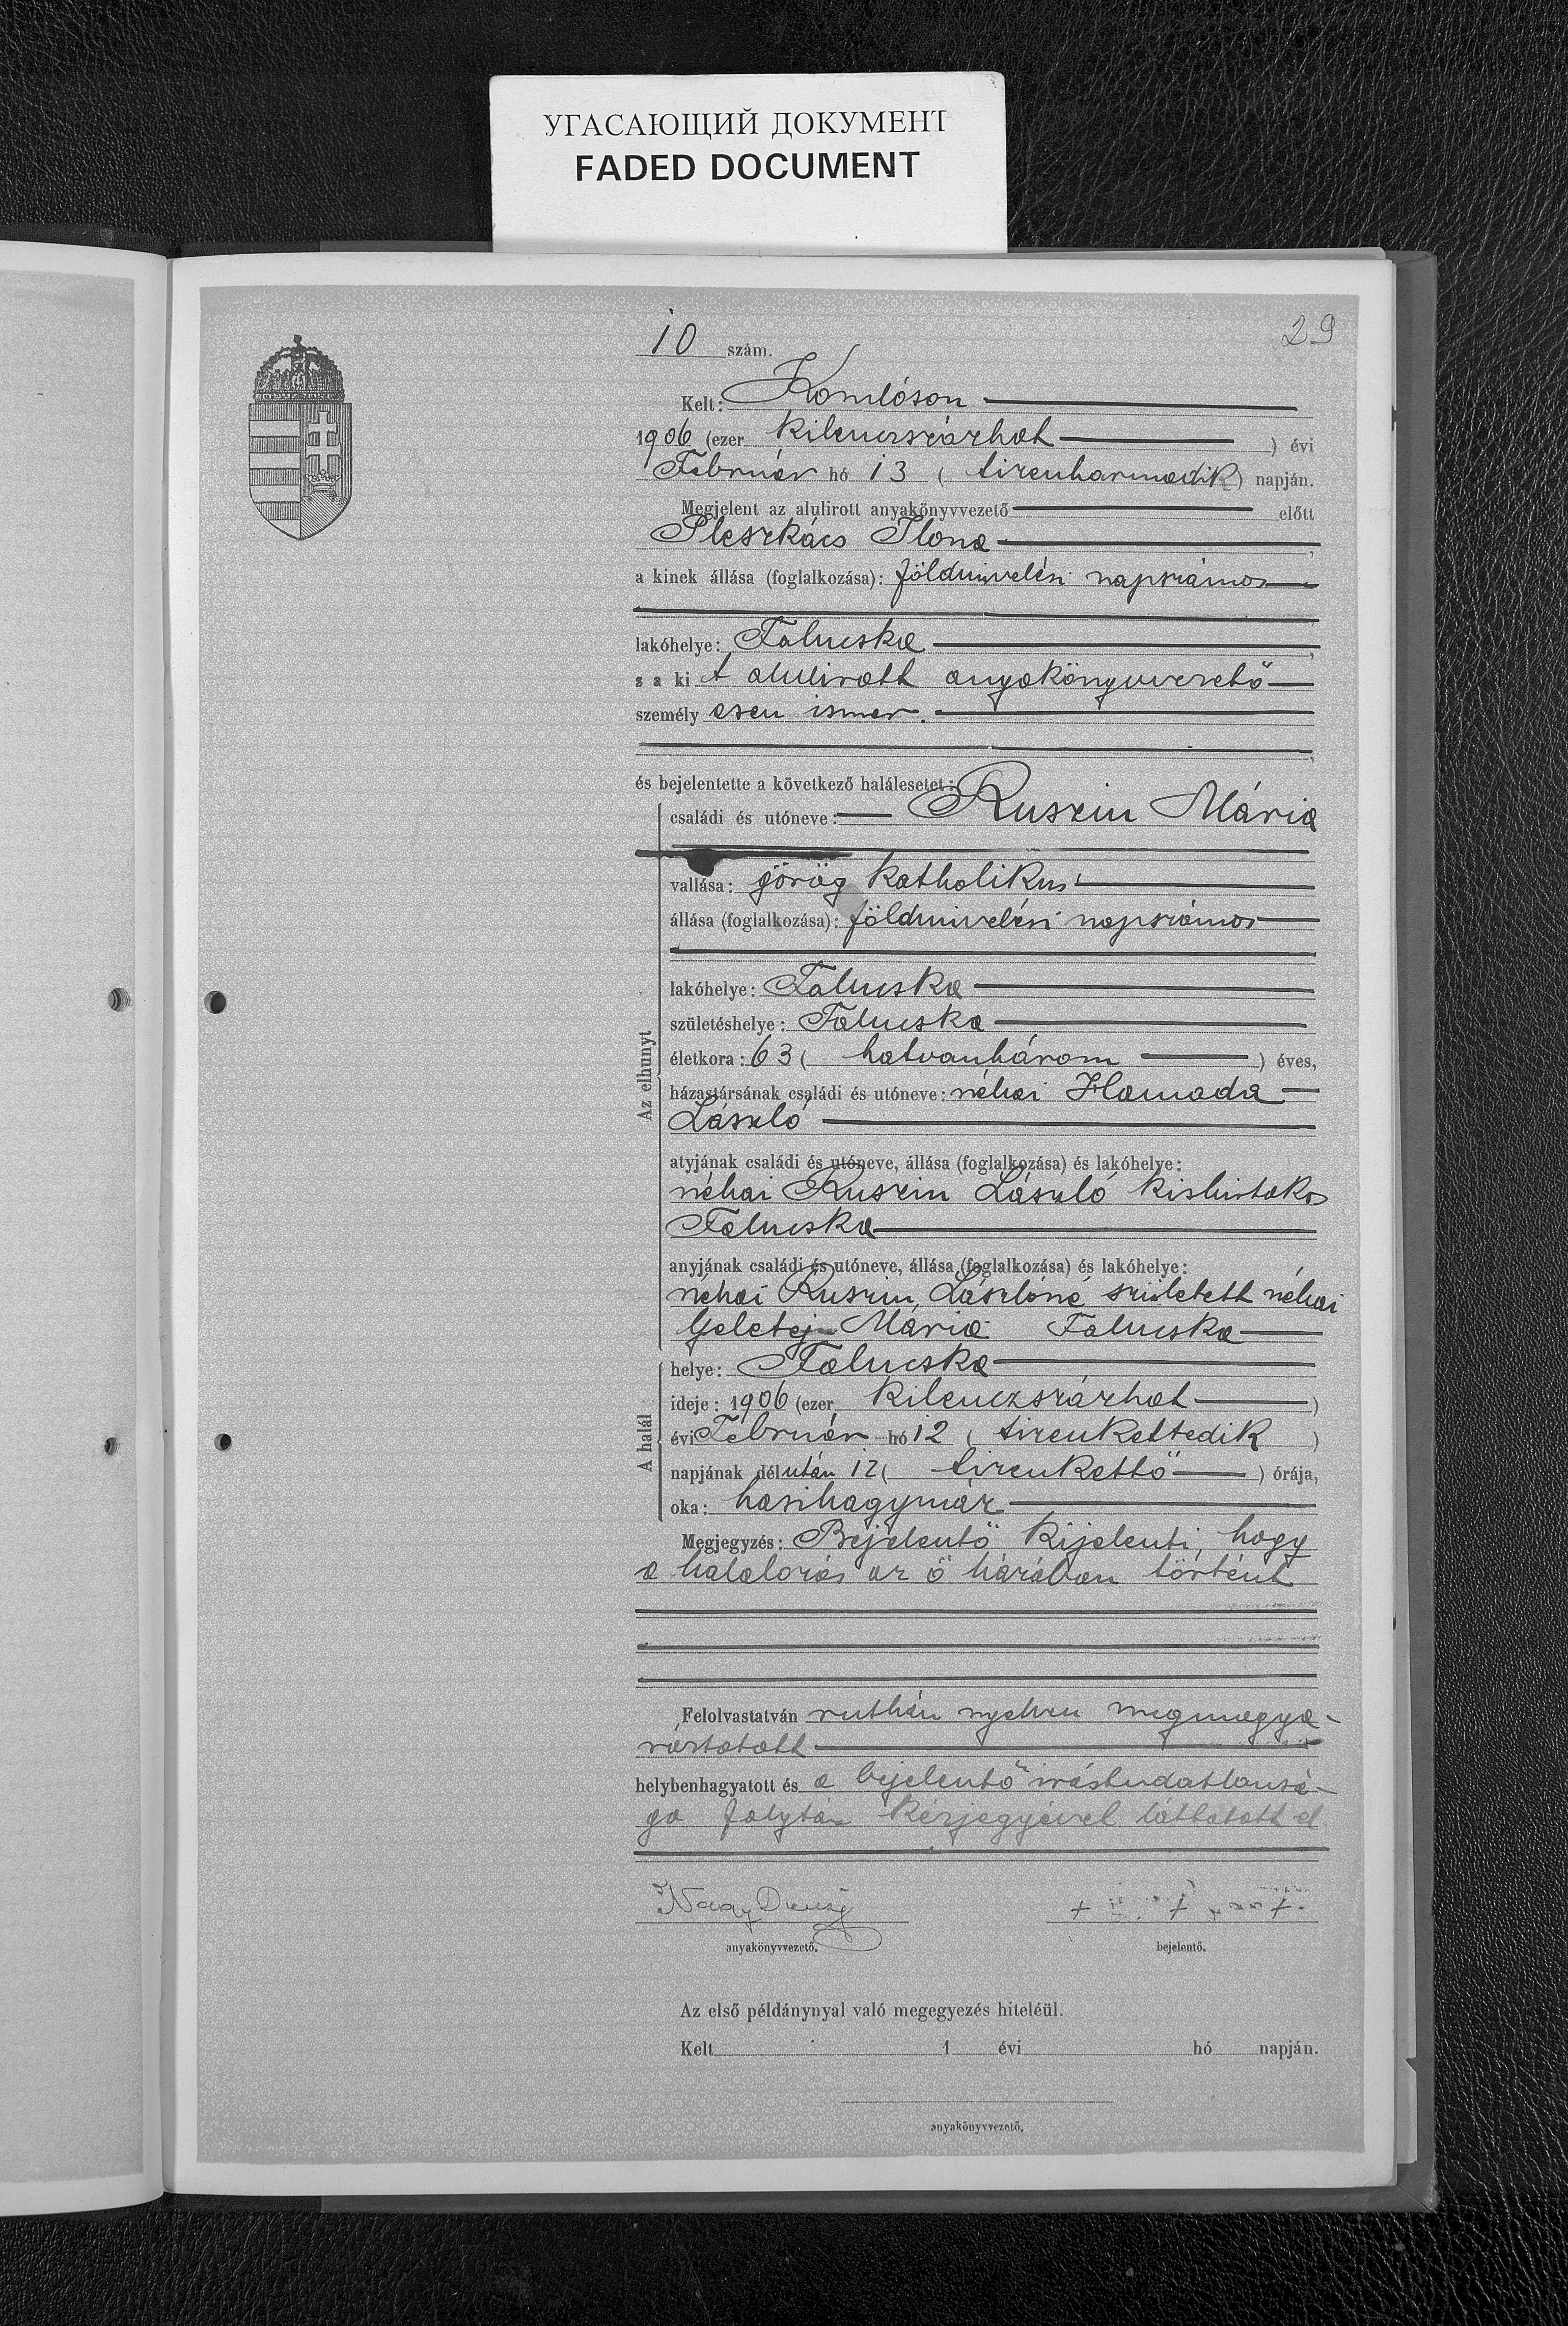 УГАСАЮЩИЙ ДОКУМЕНТ
FADED DOCUMENT
29
10 szám.
Kelt: Komlóson
1906 (ezer kilencszázhat ) évi
Február hó 13 ( tizenharmadik ) napján.
Megjelent az alulirott anyakönyvvezető előtt
Pleszkács Ilona ,
a kinek állása (foglalkozása): földmivelési napszámos
lakóhelye: Falucska ,
s a ki t alulirott anyakönyvvezető
személy esen ismer.
és bejelentette a következő halálesetet:
családi és utóneve: Ruszin Mária
vallása: görög katholikus
állása (foglalkozása): földmivelési napszámos
lakóhelye: Falucska
születéshelye: Falucska
életkora: 63 ( hatvanhárom ) éves,
Az elhunyt
házastársának családi és utóneve: néhai Hamada
László
atyjának családi és utóneve, állása (foglalkozása) és lakóhelye:
néhai Ruszin László kisbirtokos
Falucska
anyjának családi és utóneve, állása (foglalkozása) és lakóhelye:
néhai Ruszin Lászlóné született néhai
Geletej Mária Falucska
A halál
helye: Falucska
ideje: 1906 (ezer kilenczszázhat )
évi Február hó 12 ( tizenkettedik )
napjának délután 12 ( tizenkettő ) órája,
oka: hasihagymáz
Megjegyzés: Bejelentő kijelenti, hogy
a halálozás az ő házában történt
Felolvastatván ruthén nyelven megmagya-
ráztatott
helybenhagyatott és a bejelentő irástudatlansá-
ga folytán kézjegyével láttatott el
Nagy
anyakönyvvezető.
+ + +
bejelentő.
Az első példánynyal való megegyezés hiteléül.
Kelt 1 évi hó napján.
anyakönyvvezető.